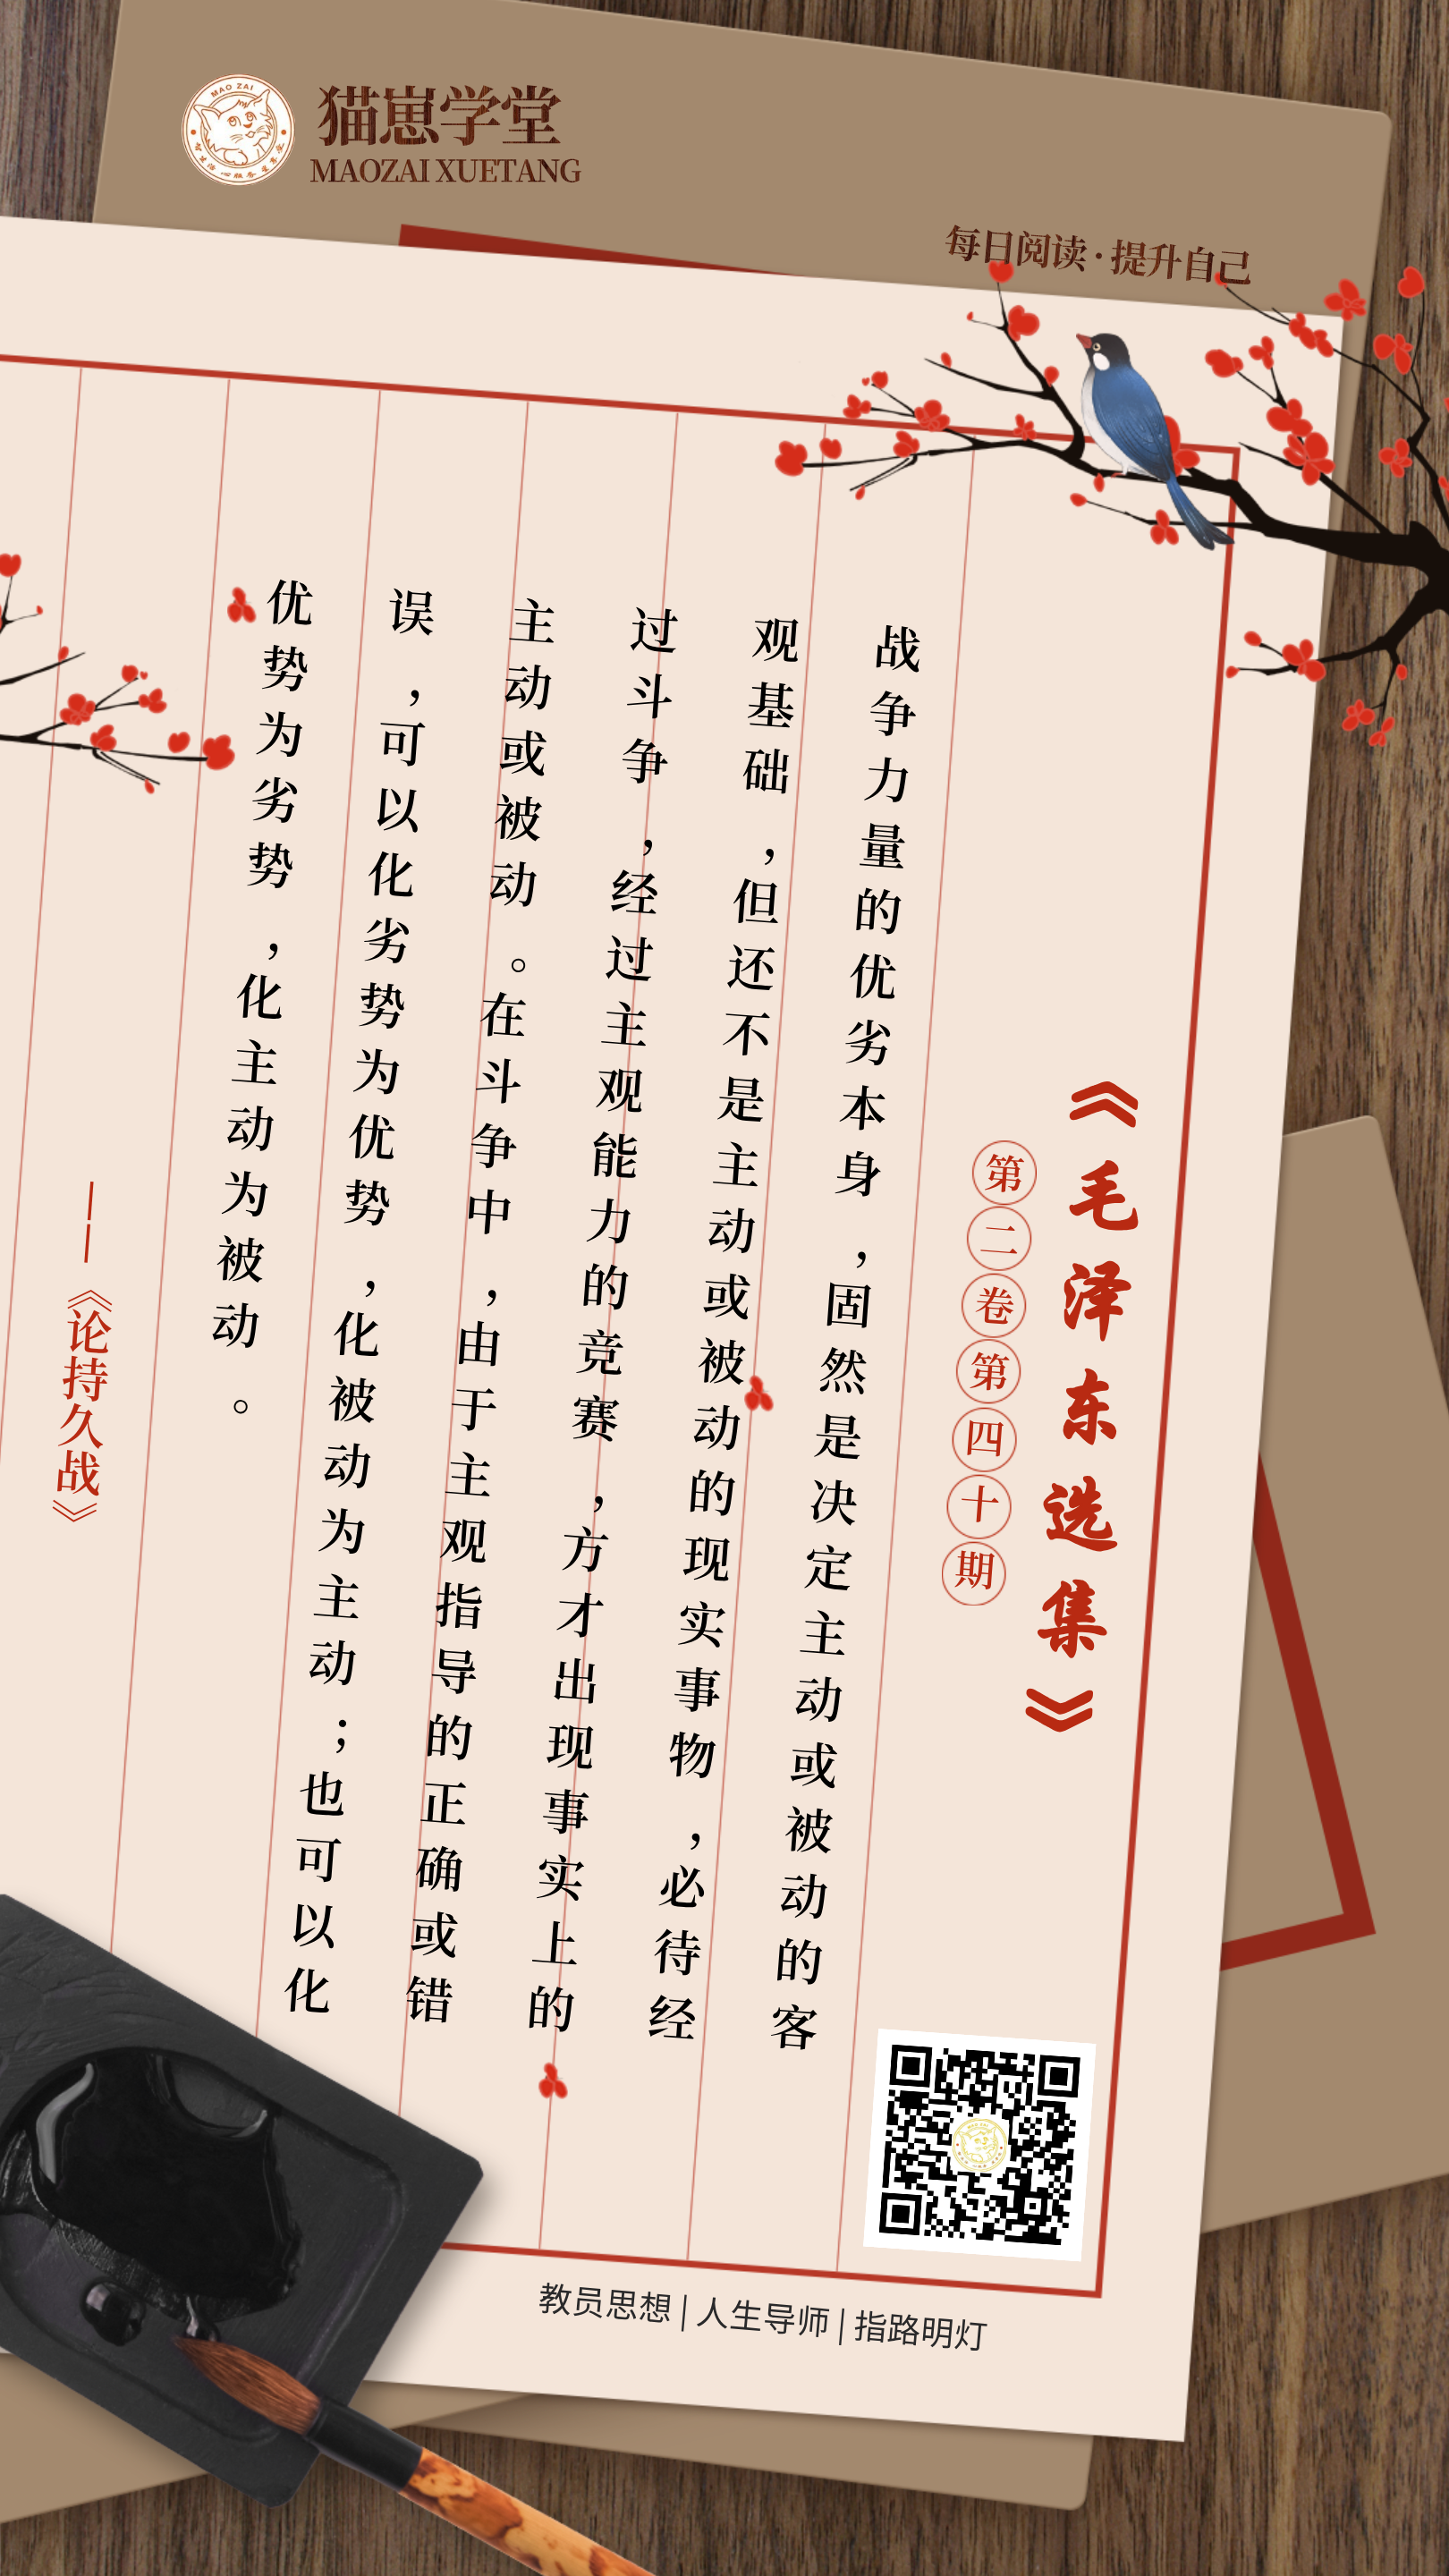 MAO ZAI
猫崽学堂
MAOZAI XUETANG
每日阅读·提升自己
《毛泽东选集》
第二卷第四十期
战争力量的优劣本身，固然是决定主动或被动的客
观基础，但还不是主动或被动的现实事物，必待经
过斗争，经过主观能力的竞赛，方才出现事实上的
主动或被动。在斗争中，由于主观指导的正确或错
误，可以化劣势为优势，化被动为主动；也可以化
优势为劣势，化主动为被动。
——《论持久战》
教员思想|人生导师|指路明灯